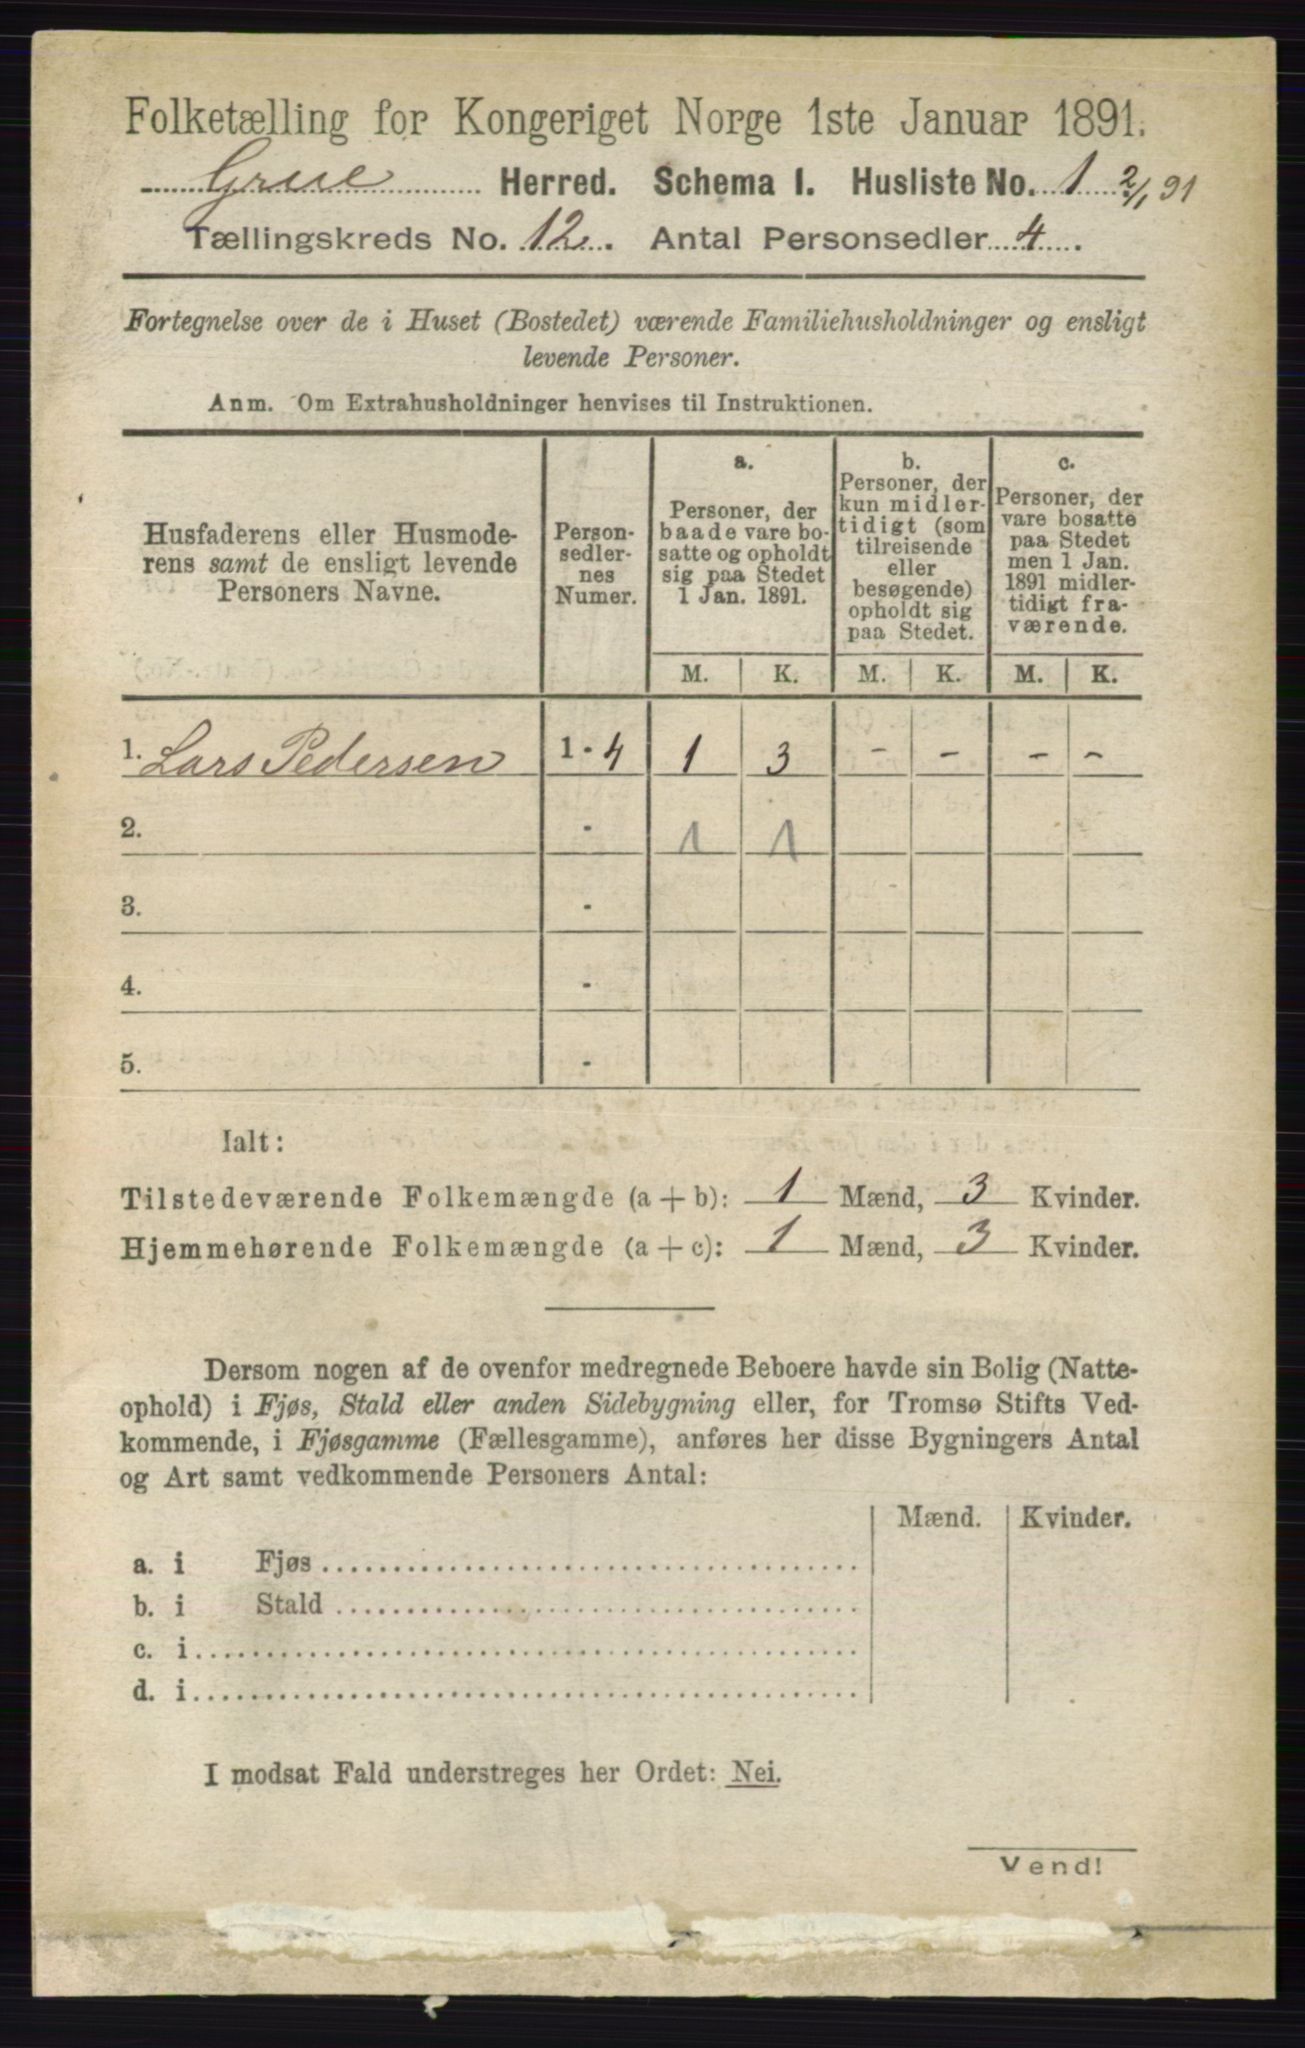 Folketælling for Kongeriget Norge 1ste Januar 1891.
Grue Herred. Schema I. Husliste No. 1 2/1 91
Tællingskreds No. 12. Antal Personsedler 4.
Fortegnelse over de i Huset (Bostedet) værende Familiehusholdninger og ensligt
levende Personer.
Anm. Om Extrahusholdninger henvises til Instruktionen.
Husfaderens eller Husmode-
rens samt de ensligt levende
Personers Navne.
Person-
sedler-
nes
Numer.
a.
Personer, der
baade vare bo-
satte og opholdt
sig paa Stedet
1 Jan. 1891.
b.
Personer, der
kun midler-
tidigt (som
tilreisende
eller
besøgende)
opholdt sig
paa Stedet.
c.
Personer, der
vare bosatte
paa Stedet
men 1 Jan.
1891 midler-
tidigt fra-
værende.
M. K. M. K. M. K.
1. Lars Pedersen 1 - 4 1 3 - - - -
2. - 1 1
3. -
4. -
5. -
Ialt:
Tilstedeværende Folkemængde (a + b): 1 Mænd, 3 Kvinder.
Hjemmehørende Folkemængde (a + c): 1 Mænd, 3 Kvinder.
Dersom nogen af de ovenfor medregnede Beboere havde sin Bolig (Natte-
ophold) i Fjøs, Stald eller anden Sidebygning eller, for Tromsø Stifts Ved-
kommende, i Fjøsgamme (Fællesgamme), anføres her disse Bygningers Antal
og Art samt vedkommende Personers Antal:
Mænd. Kvinder.
a. i Fjøs
b. i Stald
c. i
d. i
I modsat Fald understreges her Ordet: Nei.
Vend!